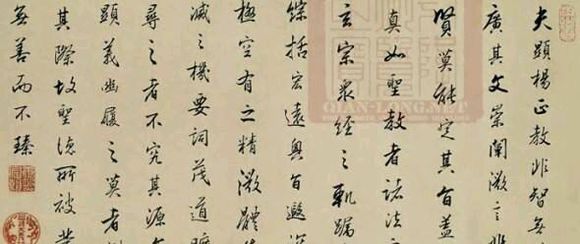 夫顯楊正教非智無
廣其文崇闡微言非
賢莫能定其旨蓋
真如聖教者諸法之
玄宗衆經之軌躅
綜括宏遠奧旨遐深
極空有之精微體
滅之機要詞茂道曠
尋之者不究其源
顯義幽履之莫者
其際故聖慈所被業
無善而不臻
QIAN-LONG.NET